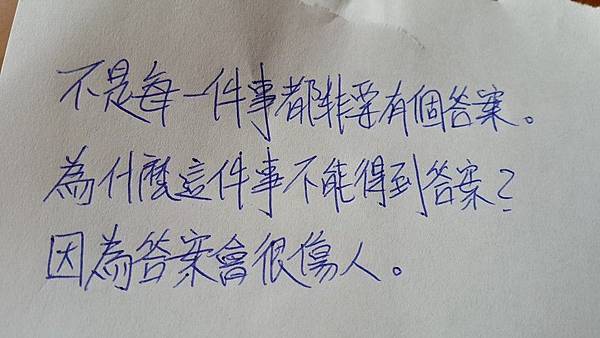 不是每一件事都非要有個答案。
為什麼這件事不能得到答案?
因為答案會很傷人。